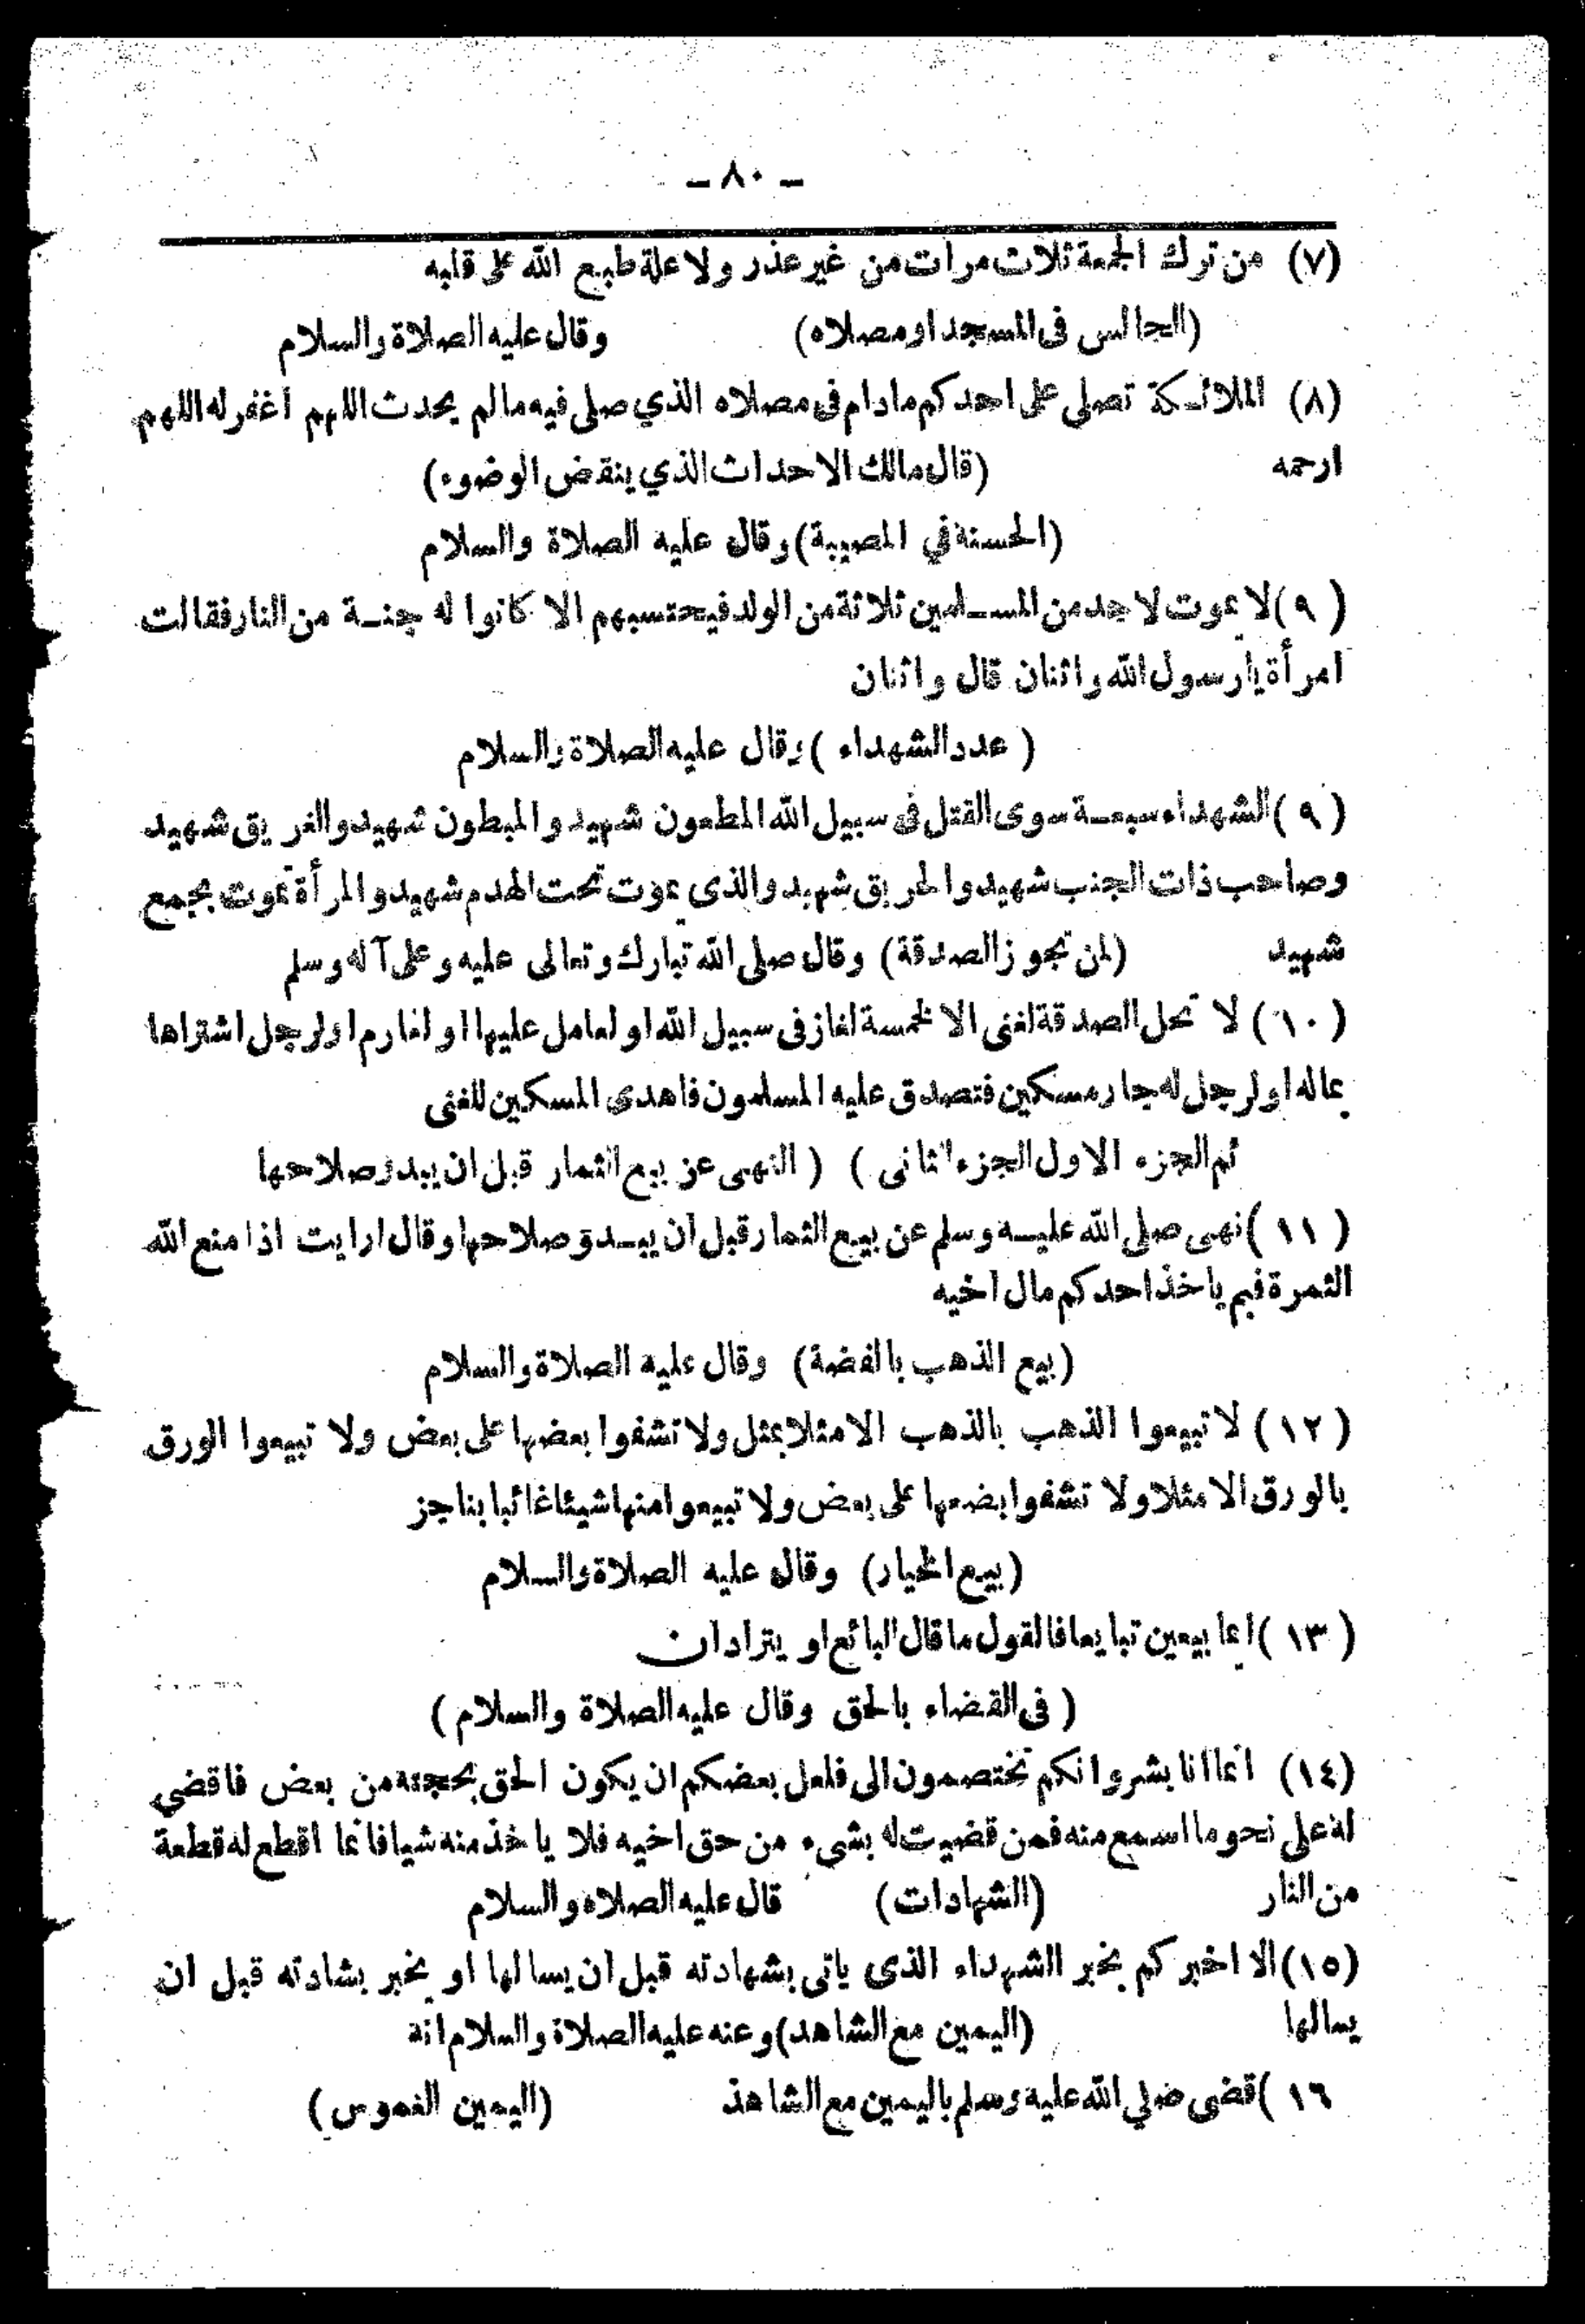 – ٨٠ –
(٧) من ترك الجمعة ثلاث مرات من غير عذر ولا علة طبع الله على قلبه
(الجالس فى المسجد او مصلاه) وقال عليه الصلاة والسلام
(٨) الملائكة تصلى على احدكم مادام فى مصلاه الذي صلى فيه مالم يحدث اللهم اغفر له اللهم
ارحمه (قال مالك الاحداث الذي ينقض الوضوء)
(الحسنة في المصيبة) وقال عليه الصلاة والسلام
(٩) لا يموت لاحد من المسلمين ثلاثة من الولد فيحتسبهم الا كانوا له جنة من النار فقالت
امرأة يا رسول الله واثنان قال واثنان
(عدد الشهداء) وقال عليه الصلاة والسلام
(٩) الشهداء سبعة سوى القتل فى سبيل الله المطعون شهيد والمبطون شهيد والغريق شهيد
وصاحب ذات الجنب شهيد والحريق شهيد والذى يموت تحت الهدم شهيد والمرأة تموت بجمع
شهيد (لمن تجوز الصدقة) وقال صلى الله تبارك وتعالى عليه وعلى آله وسلم
(١٠) لا تحل الصدقة لغنى الا لخمسة لغاز فى سبيل الله او لعامل عليها او لغارم او لرجل اشتراها
بماله او لرجل له جار مسكين فتصدق عليه المسلمون فاهدى المسكين للغنى
تم الجزء الاول الجزء الثانى ) ( النهى عن بيع الثمار قبل ان يبدو صلاحها
(١١) نهى صلى الله عليه وسلم عن بيع الثمار قبل ان يبدو صلاحها وقال ارايت اذا منع الله
الثمرة فبم ياخذ احدكم مال اخيه
(بيع الذهب بالفضة) وقال عليه الصلاة والسلام
(١٢) لا تبيعوا الذهب بالذهب الا مثلا بمثل ولا تشفوا بعضها على بعض ولا تبيعوا الورق
بالورق الا مثلا ولا تشفوا بضعها على بعض ولا تبيعوا منها شيئا غائبا بناجز
(بيع الخيار) وقال عليه الصلاة والسلام
(١٣) ايما بيعين تبايعا فالقول ما قال البائع او يترادان
(فى القضاء بالحق وقال عليه الصلاة والسلام)
(١٤) انما انا بشر وانكم تختصمون الى فلعل بعضكم ان يكون الحق بحجته من بعض فاقضي
له على نحو ما اسمع منه فمن قضيت له بشىء من حق اخيه فلا ياخذ منه شيا فانما اقطع له قطعة
من النار (الشهادات) قال عليه الصلاه والسلام
(١٥) الا اخبركم بخبر الشهداء الذى ياتى بشهادته قبل ان يسالها او يخبر بشادته قبل ان
يسالها (اليمين مع الشاهد) وعنه عليه الصلاة والسلام انه
١٦) قضى صلي الله عليه وسلم باليمين مع الشاهد (اليمين الغموس)